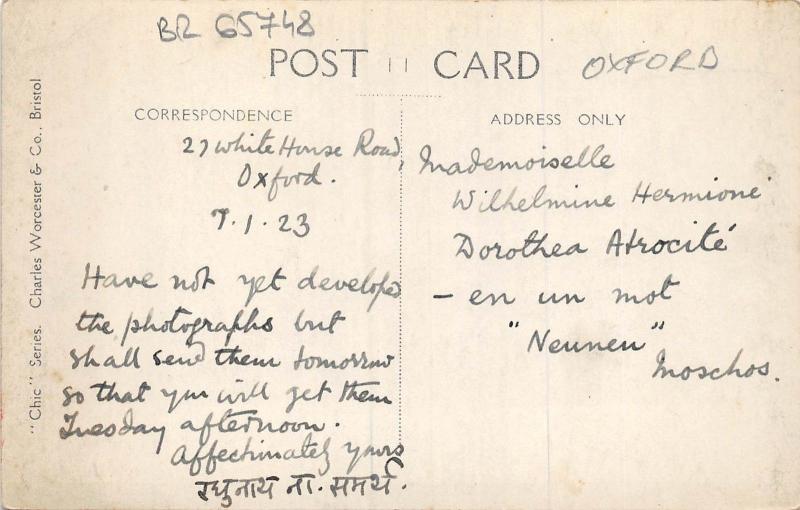 BR 65748
POST CARD
OXFORD
CORRESPONDENCE
ADDRESS ONLY
"Chic" Series. Charles Worcester & Co., Bristol
27 White House Road,
Oxford.
7.1.23
Have not yet developed
the photographs but
shall send them tomorrow
so that you will get them
Tuesday afternoon.
Affectionately yours
रघुनाथ ना. समर्थ.
Mademoiselle
Wilhelmine Hermione
Dorothea Atrocité
- en un mot
"Neuneu"
Moschos.